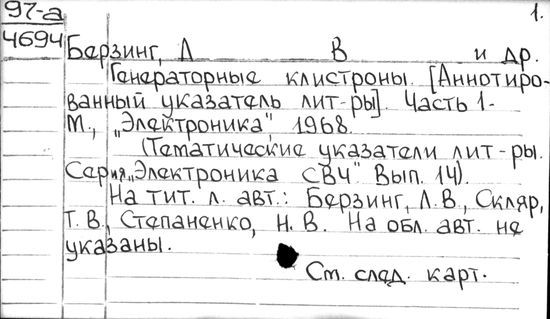 97-а 1.
4694 Берзинг, Л В и др.
Генераторные клистроны. [Аннотиро-
ванный указатель лит-ры]. Часть 1-
М., „Электроника", 1968.
(Тематические указатели лит-ры.
Серия „Электроника СВЧ" Вып. 14).
На тит. л. авт.: Берзинг, Л.В., Скляр,
Т.В., Степаненко, Н.В. На обл. авт. не
указаны.
См. след. карт.